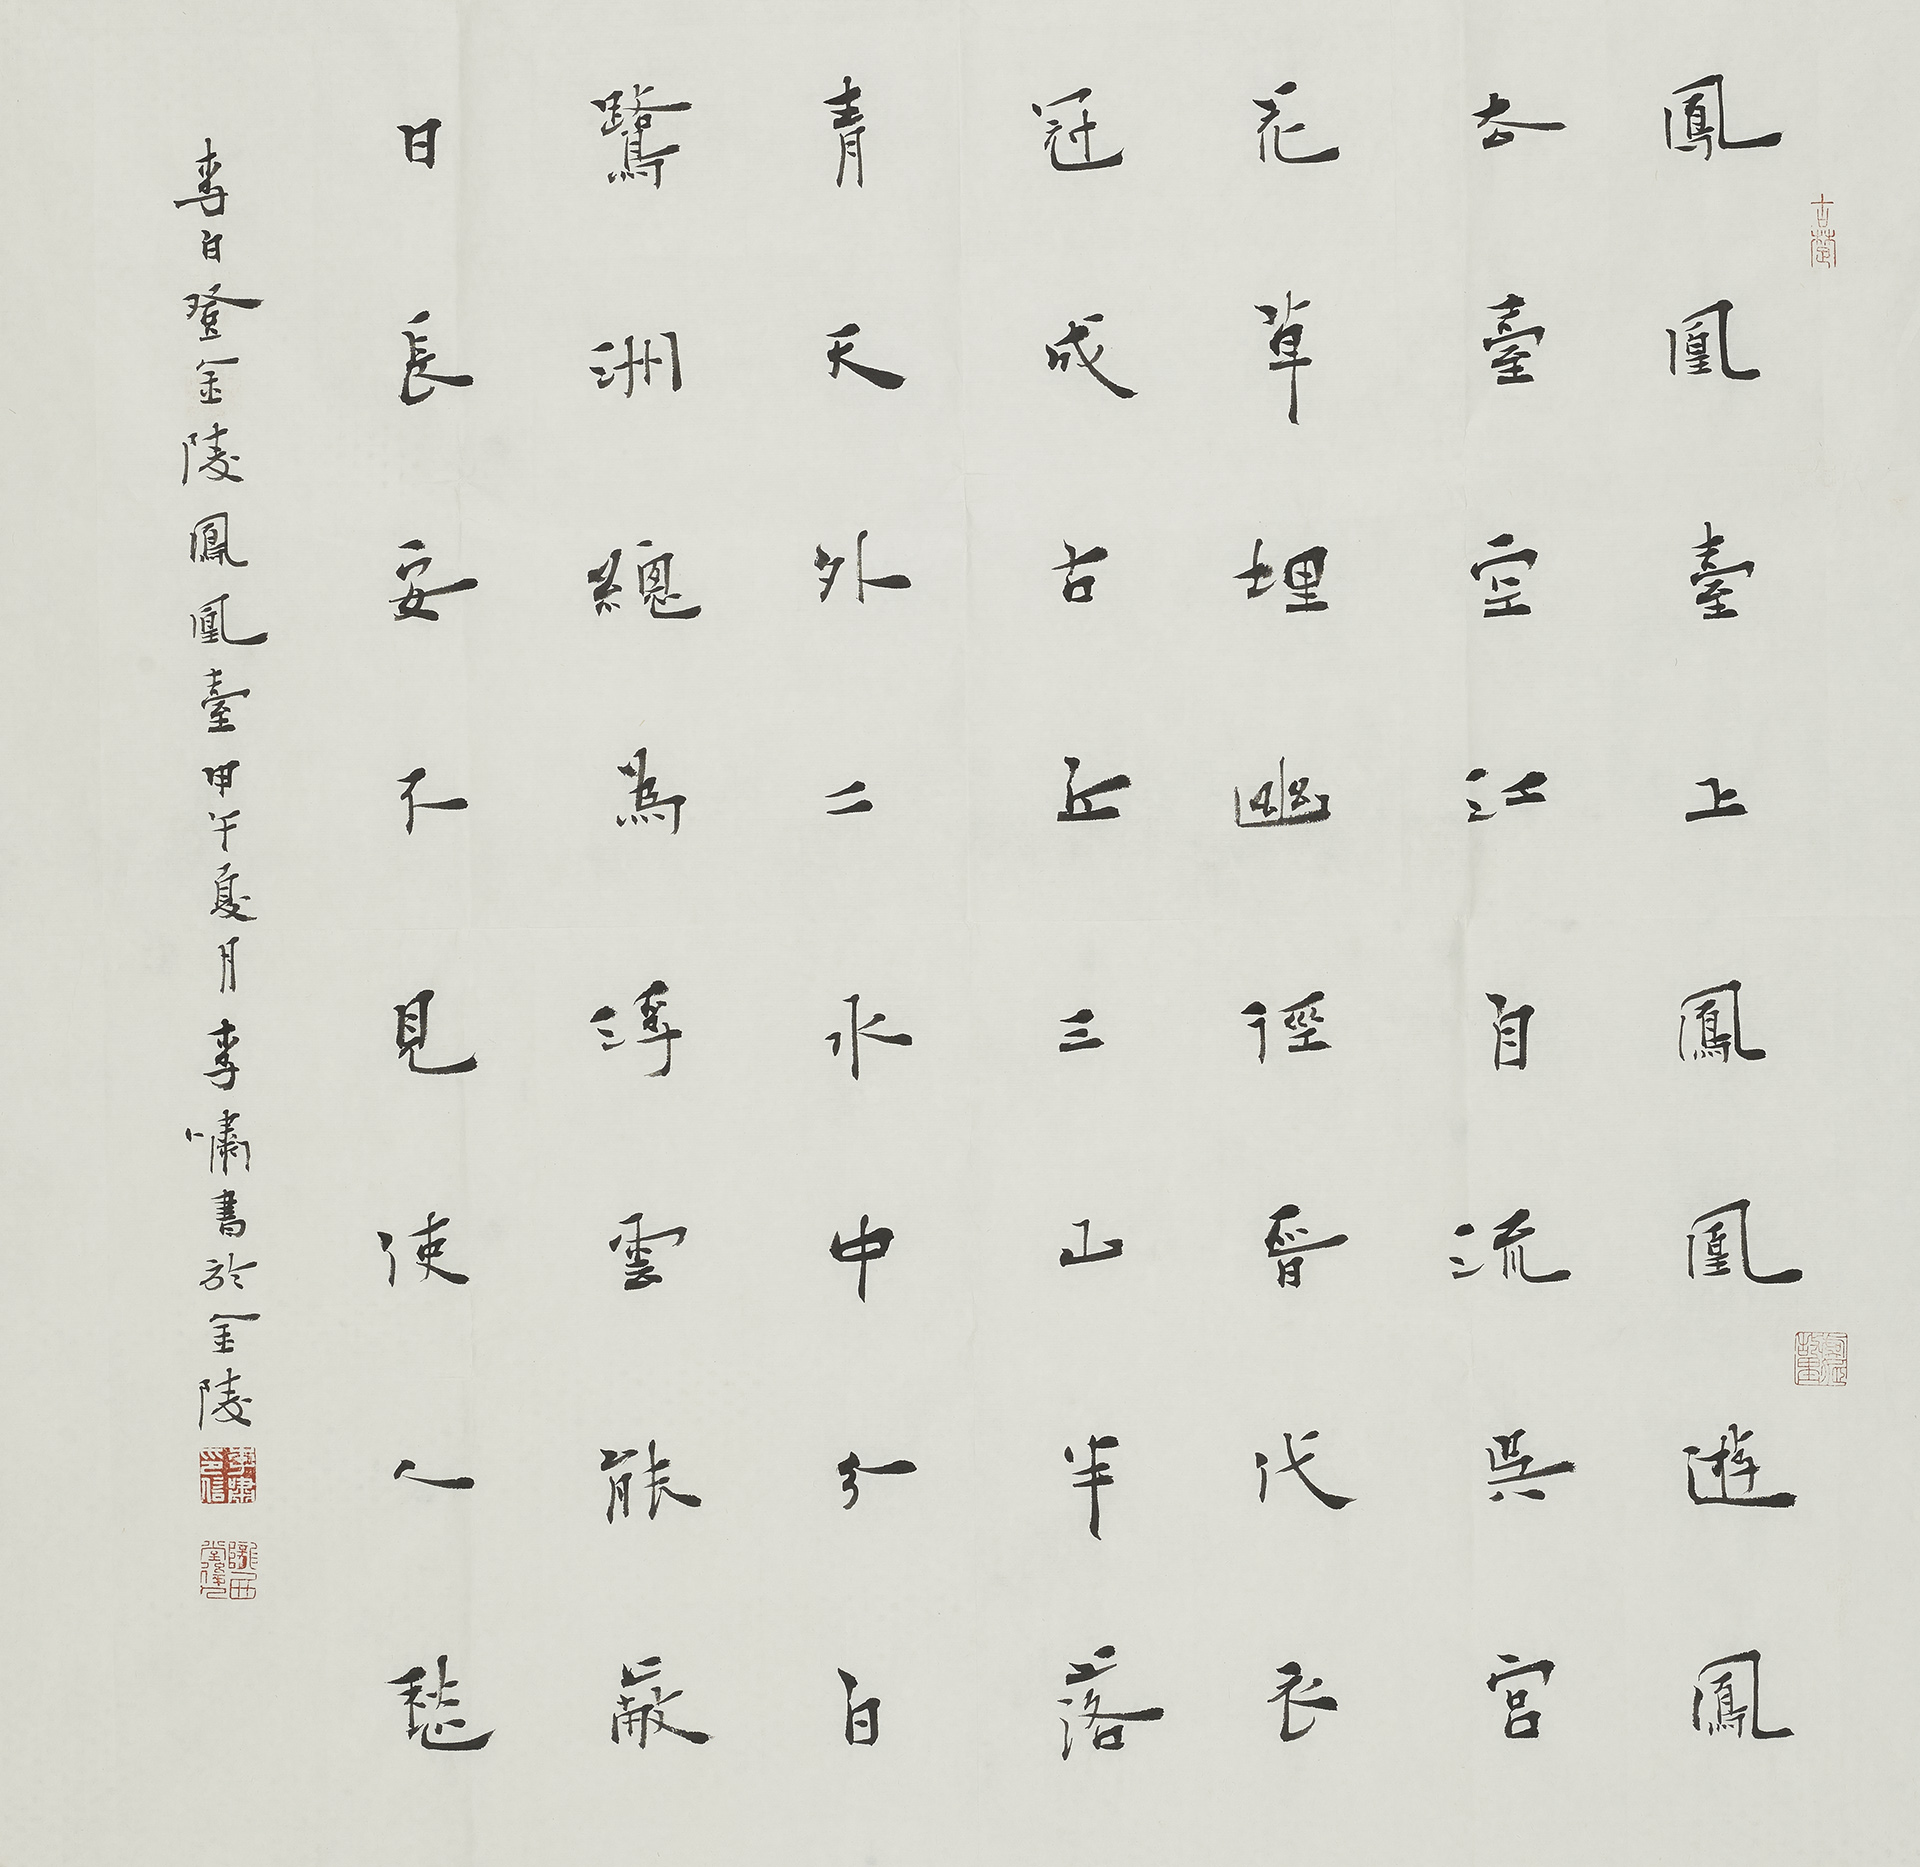 鳳凰臺上鳳凰遊鳳
去臺空江自流吳宮
花草埋幽徑晉代衣
冠成古丘三山半落
青天外二水中分白
鷺洲總為浮雲能蔽
日長安不見使人愁
李白登金陵鳳凰臺甲午夏月李嘯書於金陵
李嘯印信